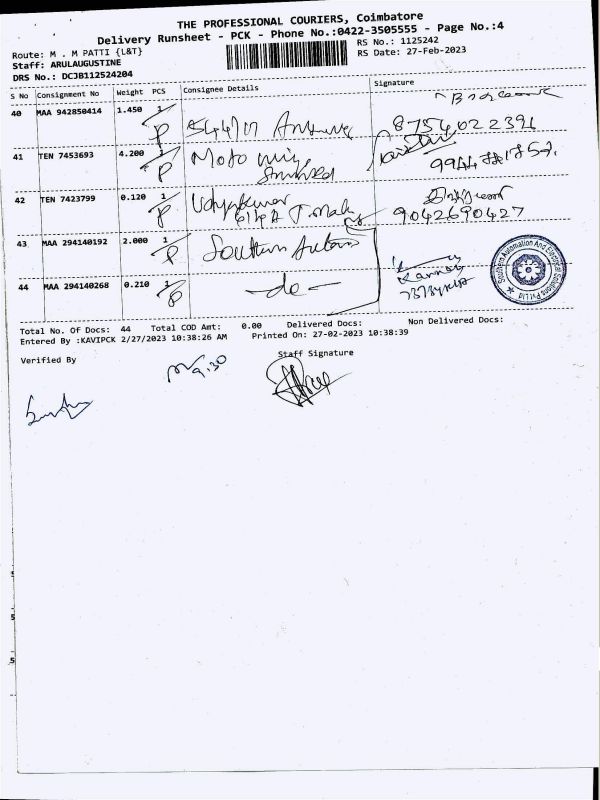 THE PROFESSIONAL COURIERS, Coimbatore
Delivery Runsheet - PCK - Phone No.:0422-3505555 - Page No.:4
Route: M . M PATTI {L&T}
RS No.: 1125242
Staff: ARULAUGUSTINE
RS Date: 27-Feb-2023
DRS No.: DCJB112524204
S No Consignment No Weight PCS Consignee Details Signature
40 MAA 942850414 1.450 1 P
8754022391
41 TEN 7453693 4.200 1 P Moto
42 TEN 7423799 0.120 1 P Udhyakumar
9042690427
43 MAA 294140192 2.000 1 P Southern Autom
Southern Automation And Electrical Solutions Pvt Ltd
44 MAA 294140268 0.210 1 P -do-
Total No. Of Docs: 44 Total COD Amt: 0.00 Delivered Docs: Non Delivered Docs:
Entered By :KAVIPCK 2/27/2023 10:38:26 AM Printed On: 27-02-2023 10:38:39
Verified By Staff Signature
9.30